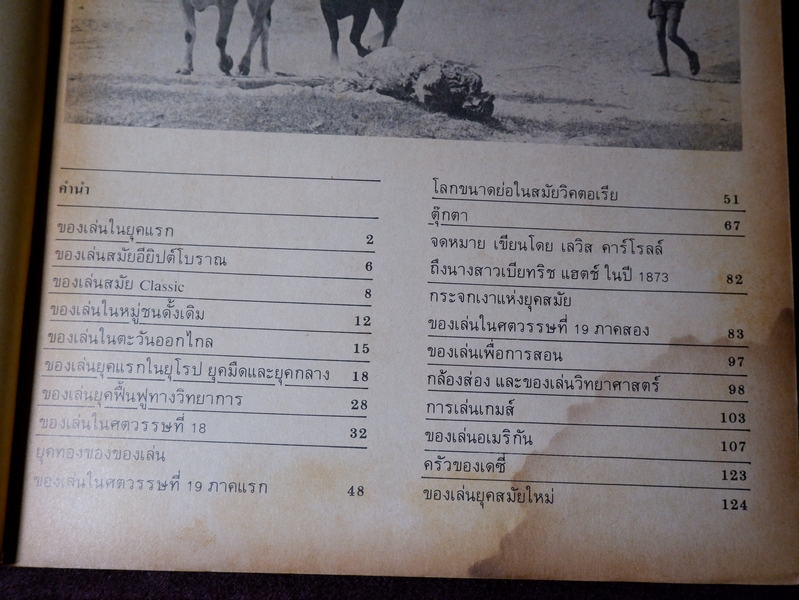 คำนำ
ของเล่นในยุคแรก 2
ของเล่นสมัยอียิปต์โบราณ 6
ของเล่นสมัย Classic 8
ของเล่นในหมู่ชนดั้งเดิม 12
ของเล่นในตะวันออกไกล 15
ของเล่นยุคแรกในยุโรป ยุคมืดและยุคกลาง 18
ของเล่นยุคฟื้นฟูทางวิทยาการ 28
ของเล่นในศตวรรษที่ 18 32
ยุคทองของของเล่น
ของเล่นในศตวรรษที่ 19 ภาคแรก 48
โลกขนาดย่อในสมัยวิคตอเรีย 51
ตุ๊กตา 67
จดหมาย เขียนโดย เลวิส คาร์โรลล์
ถึงนางสาวเบียทริช แฮตช์ ในปี 1873 82
กระจกเงาแห่งยุคสมัย
ของเล่นในศตวรรษที่ 19 ภาคสอง 83
ของเล่นเพื่อการสอน 97
กล้องส่อง และของเล่นวิทยาศาสตร์ 98
การเล่นเกมส์ 103
ของเล่นอเมริกัน 107
ครัวของเดซี่ 123
ของเล่นยุคสมัยใหม่ 124